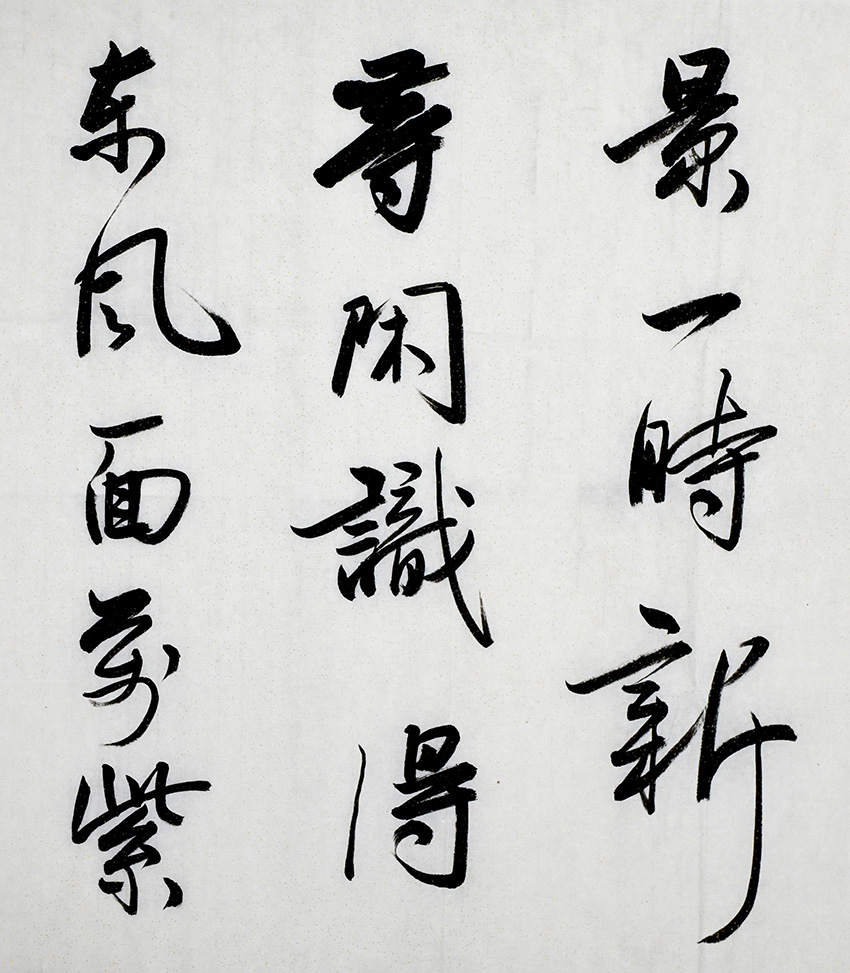 景一時新
等闲識得
东风面萬紫